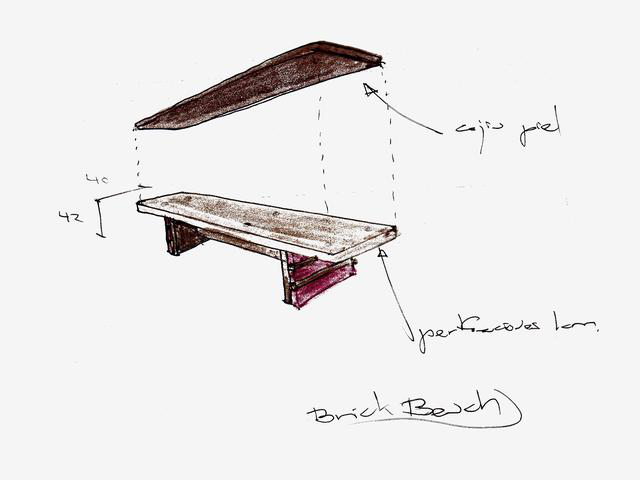 cojin piel
40
42
perforaciones 1cm.
Brick Bench